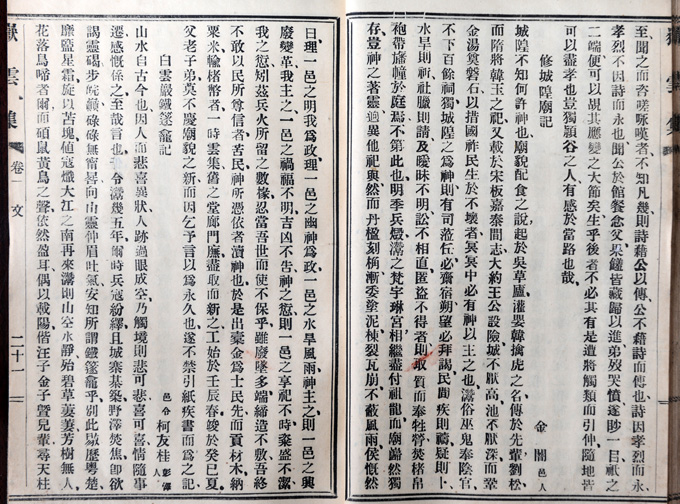 至聞之而咨嗟咏嘆者不知凡幾則詩藉公以傳公不藉詩而傳也詩因孝烈而永
孝烈不因詩而永也聞公於館餐念父杲饈皆藏歸以進弟歿哭憤遂眇一目祇之
二端便可以覘其應變之大節矣生乎後者不必其有是遭將觸類而引伸隨地皆
可以盡孝也豈獨潁谷之人有感於當路也哉
修城隍廟記
金闓 邑人
城隍不知何許神也廟貌配食之說起於吳草廬灌嬰韓擒虎之名傳於先輩劉松
而隋將韓玉之祀又載於宋板嘉泰間志大約王公設險城不厭高池不厭深而鞏
金湯奠磐石以措國祚民生於不壞者冥冥中必有神以主之也潛俗巫鬼奉陰官
不下百餘祠獨城隍之爲神則有司蒞任必齋宿朔望必拜謁民間疾則禱疑則卜
水旱則祈社臘則請及曖昧不明訟不相直匿盜不得者則取質而奉牲勞熒楮帛
袍帶旛幢於庭焉不第此也明季兵燬潛之梵宇琳宮相繼盡付祖龍而廟巋然獨
存豈神之著靈迥異他祀與然而丹楹刻桷漸委塗泥棟裂瓦崩不蔽風雨侯慨然
嶽雲集 卷一 文 二十一
曰理一邑之明我爲政理一邑之幽神爲政一邑之水旱風雨神主之則一邑之興
廢變革我主之一邑之禍福不明吉凶不告神之愆則一邑之享祀不時粢盛不潔
我之愆矧茲兵火所留之數椽忍當吾世而使不保乎雖廢墜多端締造不敷吾終
不敢以民所尊信者苦民神所憑依者瀆神也於是出橐金爲士民先而貢材木納
粟米輸楮幣者一時雲集舊之堂廊門廡盡取而新之工始於壬辰春竣於癸巳夏
父老子弟莫不慶廟貌之新而因乞予言以爲永久也遂不禁引紙疾書而爲之記
白雲巖鐵篷龕記
邑令 柯友桂 彭澤人
山水自古今也因人而悲喜異狀人跡過眼成空乃觸境則悲可悲喜可喜情隨事
遷感慨係之至哉言也予令潛幾五年爾時兵寇紛繹且城寨基築野澤熒焦卽欲
謁靈碣步皖巖碌碌無甯晷向山靈仲眉吐氣安知所謂鐵篷龕乎別此嶽歷粵楚
廉盬星霜旋以苦塊値寇蠘大江之南再來潛則山空水靜殆碧草萋萋芳樹無人
花落鳥啼者爾而碩鼠黃鳥之聲依然盈耳偶以載陽偕汪子金子曁兒輩尋天柱